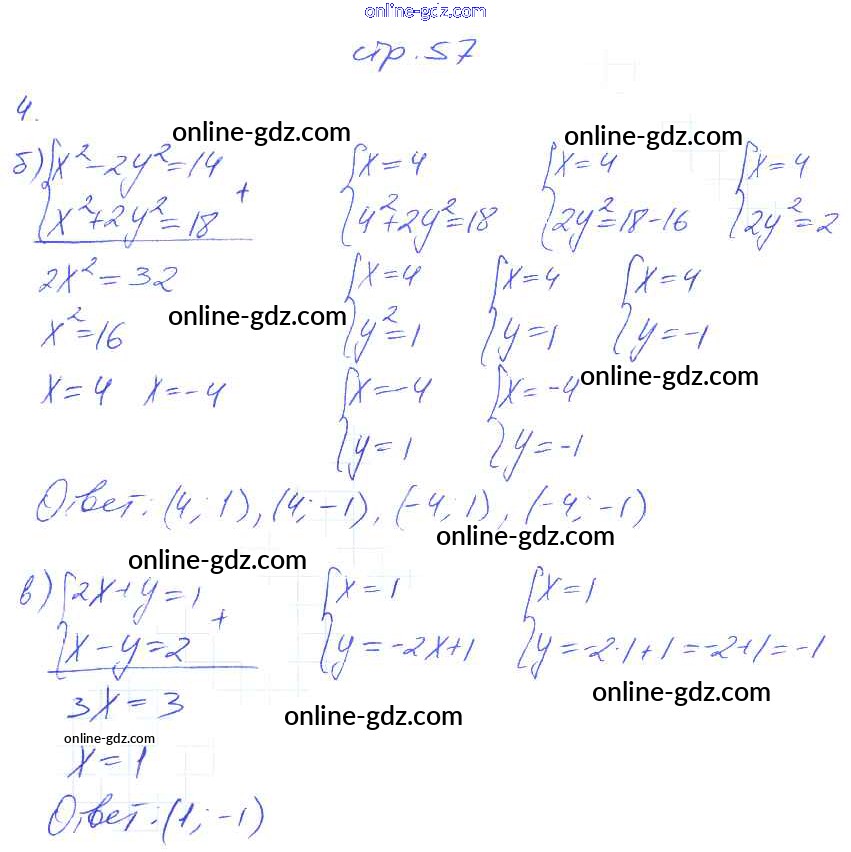 online-gdz.com
стр. 57
4.
online-gdz.com online-gdz.com
б) { x² - 2y² = 14 + { x = 4 { x = 4 { x = 4
{ x² + 2y² = 18 { 4² + 2y² = 18 { 2y² = 18 - 16 { 2y² = 2
2x² = 32 { x = 4 { x = 4 { x = 4
online-gdz.com
x² = 16 { y² = 1 { y = 1 { y = -1
online-gdz.com
x = 4 x = -4 { x = -4 { x = -4
{ y = 1 { y = -1
Ответ: (4; 1), (4; -1), (-4; 1), (-4; -1)
online-gdz.com
online-gdz.com
в) { 2x + y = 1 + { x = 1 { x = 1
{ x - y = 2 { y = -2x + 1 { y = -2·1 + 1 = -2 + 1 = -1
online-gdz.com
3x = 3
online-gdz.com
online-gdz.com
x = 1
Ответ: (1; -1)